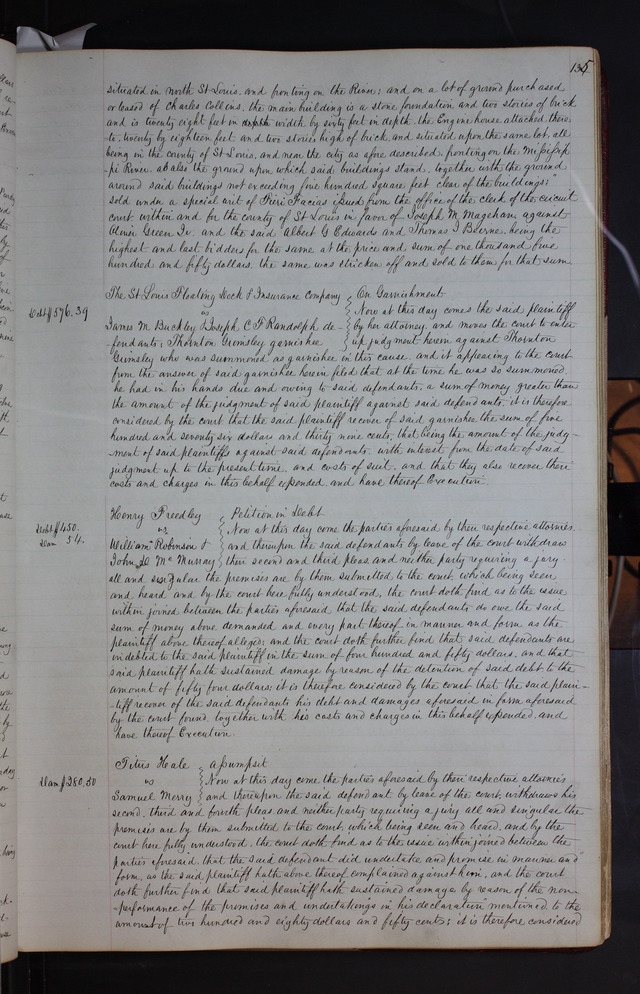 135
situated in north St Louis, and fronting on the River; and on a lot of ground purchased
or leased of Charles Collins, the main building is a stone foundation and two stories of brick
and is twenty eight feet in width by sixty feet in depth. the Engine house attached there
to, twenty by eighteen feet and two stories high of brick, and situated upon the same lot, all
being in the county of St Louis, and near the city as afore described, fronting on the Missisip
pi River. as also the ground upon which said buildings stand, together with the ground
around said buildings not exceeding five hundred square feet clear of the buildings;"
sold under a special writ of Fieri Facias issued from the office of the clerk of the circuit
court within and for the county of St Louis in favor of Joseph M. Mageham against
Green Jr. and the said Albert G Edwards and Thomas J being the
highest and last bidders for the same at the price and sum of one thousand five
hundred and fifty dollars, the same was stricken off and sold to them for that sum
The St Louis Floating Dock & Insurance Company On Garnishment
vs Now at this day comes the said plaintiff
Debt $576.39
James M Buckley & Joseph C F Randolph de- by her attorney, and moves the court to enter
fendants, Thornton Grimsley garnishee up judgment herein against Thornton
Grimsley who was summoned as garnishee in this cause, and it appearing to the court
from the answer of said garnishee herein filed that at the time he was so summoned
he had in his hands due and owing to said defendants, a sum of money greater than
the amount of the judgment of said plaintiff against said defendants, it is therefore
considered by the court that the said plaintiff recover of said garnishee the sum of five
hundred and seventy six dollars and thirty nine cents, that being the amount of the judg-
-ment of said plaintiffs against said defendants, with interest from the date of said
judgment up to the present time, and costs of suit, and that they also recover their
costs and charges in this behalf expended, and have thereof Execution.
Henry Freedley Petition in Debt
vs Now at this day come the parties aforesaid by their respective attornies
Debt $450.
Dam 54.
William Robinson & and thereupon the said defendants by leave of the court withdraw
John D McMurray their second and third pleas, and neither party requiring a jury
all and singular the premises are by them submitted to the court, which being seen
and heard, and by the court here fully understood, the court doth find as to the issue
within joined between the parties aforesaid that the said defendants do owe the said
sum of money above demanded and every part thereof, in manner and form as the
plaintiff above thereof alleges; and the court doth further find that said defendants are
indebted to the said plaintiff in the sum of four hundred and fifty dollars, and that
said plaintiff hath sustained damage by reason of the detention of said debt to the
amount of fifty four dollars; it is therefore considered by the court that the said plain-
-tiff recover of the said defendants his debt and damages aforesaid in form aforesaid
by the court found, together with his costs and charges in this behalf expended, and
have thereof Execution.
Titus Hale assumpsit
vs Now at this day come the parties aforesaid by their respective attornies
Dam $280.50
Samuel Merry and thereupon the said defendant by leave of the court, withdraws his
second, third and fourth pleas, and neither party requiring a jury all and singular the
premises are by them submitted to the court, which being seen and heard, and by the
court here fully understood, the court doth find as to the issue within joined between the
parties aforesaid, that the said defendant did undertake and promise in manner and
form, as the said plaintiff hath above thereof complained against him, and the court
doth further find that said plaintiff hath sustained damage by reason of the non-
-performance of the promises and undertakings in his declaration mentioned, to the
amount of two hundred and eighty dollars and fifty cents; it is therefore considered